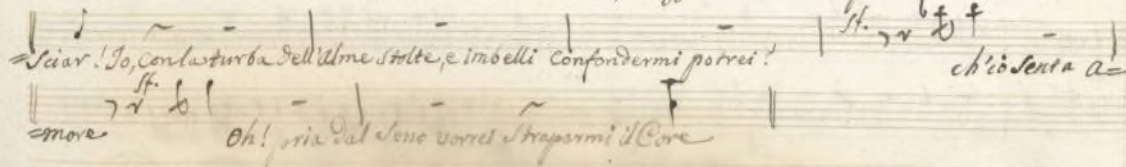 =sciar! Io, con la turba dell'alme stolte, e imbelli confondermi potrei! ch'io senta a=
=more Oh! pria dal seno vorrei strapparmi il Core